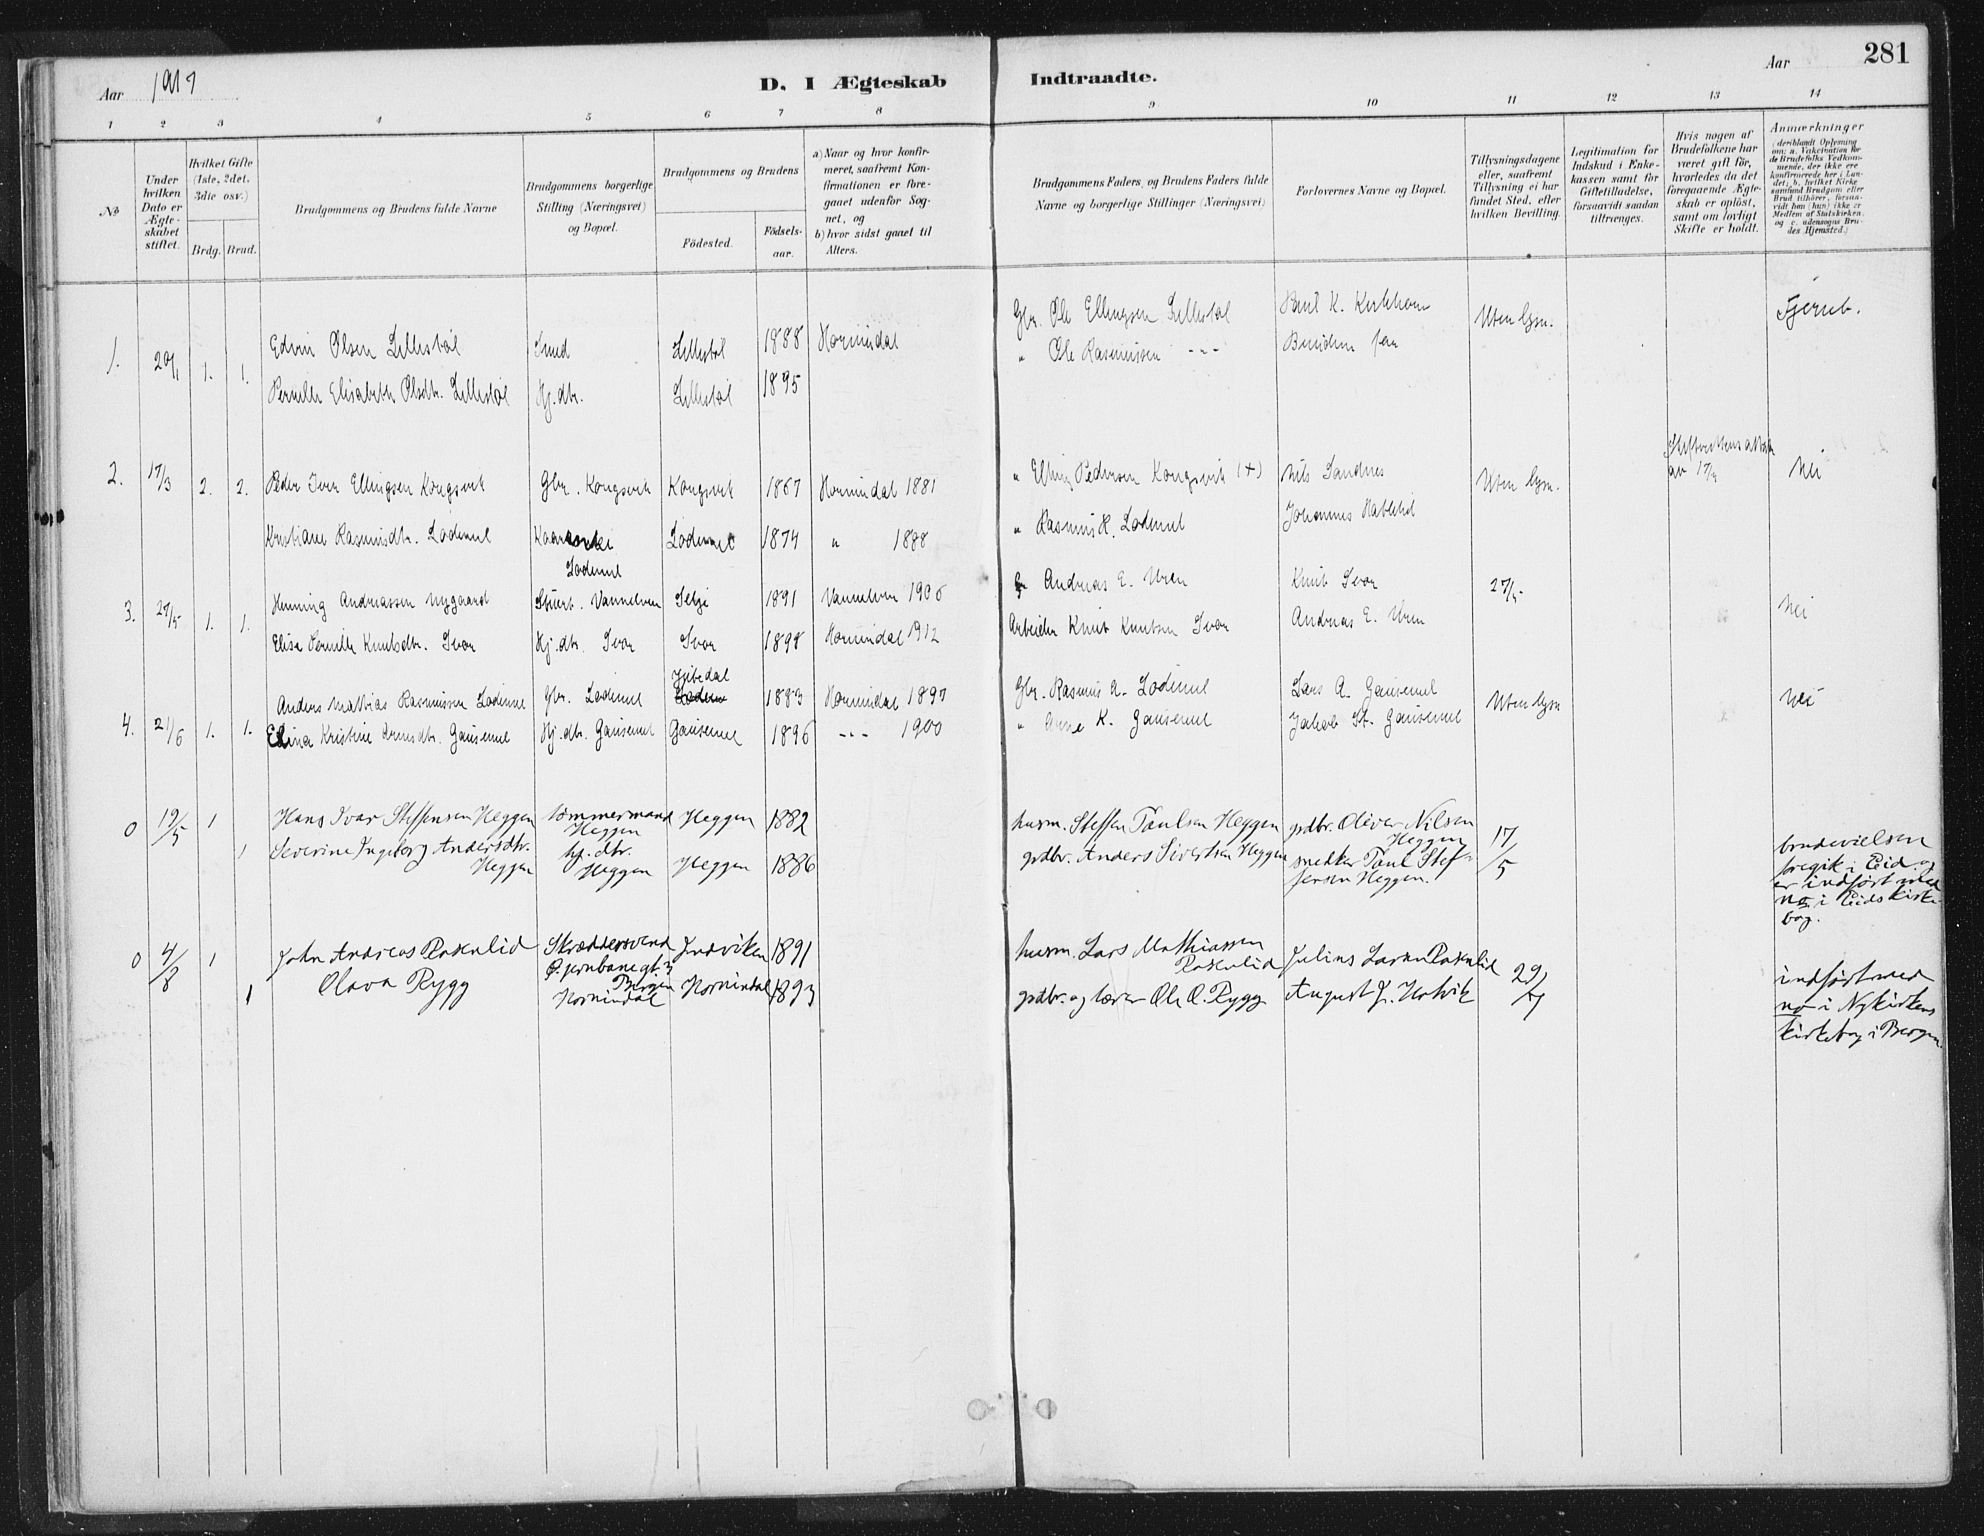 Aar 1917
D. I Ægteskab Indtraadte.
Aar
281
1 2 3 4 5 6 7 8 9 10 11 12 13 14
No
Under hvilken Dato er Ægteskabet stiftet.
Hvilket Gifte (1ste, 2det, 3die osv.)
Brdg. Brud.
Brudgommens og Brudens fulde Navne
Brudgommens borgerlige Stilling (Næringsvei) og Bopæl.
Brudgommens og Brudens
Fødested.
Fødselsaar.
a) Naar og hvor konfirmeret, saafremt Konfirmationen er foregaaet udenfor Sognet, og
b) hvor sidst gaaet til Alters.
Brudgommens Faders og Brudens Faders fulde Navne og borgerlige Stillinger (Næringsvei)
Forlovernes Navne og Bopæl.
Tillysningsdagene eller, saafremt Tillysning ei har fundet Sted, efter hvilken Bevilling.
Legitimation for Indskud i Enkekassen samt for Giftetilladelse, forsaavidt saadan tiltrænges.
Hvis nogen af Brudefolkene har været gift før, hvorledes da det foregaaende Ægteskab er opløst, samt om lovligt Skifte er holdt.
Anmærkninger (deriblandt Oplysning om: a. Vakcination for de Brudefolks Vedkommende, der ikke ere konfirmerede her i Landet; b. hvilket Kirkesamfund Brudgom eller Brud tilhører, forsaavidt han (hun) ikke er Medlem af Statskirken, og c. udensogns Brudes Hjemsted.)
1. 20/1 1. 1. Edvin Olsen Lillestøl Smed Lillestøl 1888 Hornindal Gbr. Ole Ellingsen Lillestøl Paul K. Kirkhorn Uten lysn. Fjerub.
Pernille Elisabeth Olsdtr. Lillestøl Hj.dtr. Lillestøl 1895 " Ole Rasmussen - - - Brudens far
2. 17/3 2. 2. Peder Iver Ellingsen Kongsvik Gbr. Kongsvik Kongsvik 1867 Hornindal 1881 " Elling Pedersen Kongsvik (+) Nils Sandnes Uten lysn. Skifterettens attest av 17/3 Nei
Kristiane Rasmusdtr. Lødemel Lødemel Lødemel 1874 " 1888 " Rasmus H. Lødemel Johannes
3. 27/5 1. 1. Henning Andreassen Nygaard Vannelven Selje 1891 Vannelven 1906 Andreas E. Uren Knut Svor 27/5 Nei
Elise Pernille Knutsdtr. Svor Hj.dtr. Svor Svor 1898 Hornindal 1912 Arbeider Knut Knutsen Svor Andreas E. Uren
4. 2/6 1. 1. Anders Mathias Rasmussen Lødemel Gbr. Lødemel 1883 Hornindal 1897 Gbr. Rasmus A. Lødemel Lars A. Gausemel Uten lysn Nei
Elina Kristine Arnesdtr. Gausemel Hj.dtr. Gausemel Gausemel 1896 - - - 1900 " Arne K. Gausemel Jakob St. Gausemel
0 19/5 1 Hans Ivar Steffensen Heggen tømmermand Heggen Heggen 1882 husm. Steffen Paulsen Heggen gdbr. Oliver Nilsen Heggen 17/5
1 Severine Ingeborg Andersdtr. Heggen hj.dtr. Heggen Heggen 1886 gdbr. Anders Sivertsen Heggen snedker Paul Steffensen Heggen.
brudevielsen foregik i Eid og er indført med no i Eids kirkebog.
0 4/8 1 John Andreas Raknlid Skræddersvend Ø. jernbanegt. 3 Bergen Indviken 1891 husm. Lars Mathiassen Raknlid Julius Larsen Raknlid 29/7
1 Olava Rygg Hornindal Hornindal 1893 gdbr. og lærer Ole O. Rygg August J. Holvik
indført med no i Nykirkens kirkebog i Bergen.